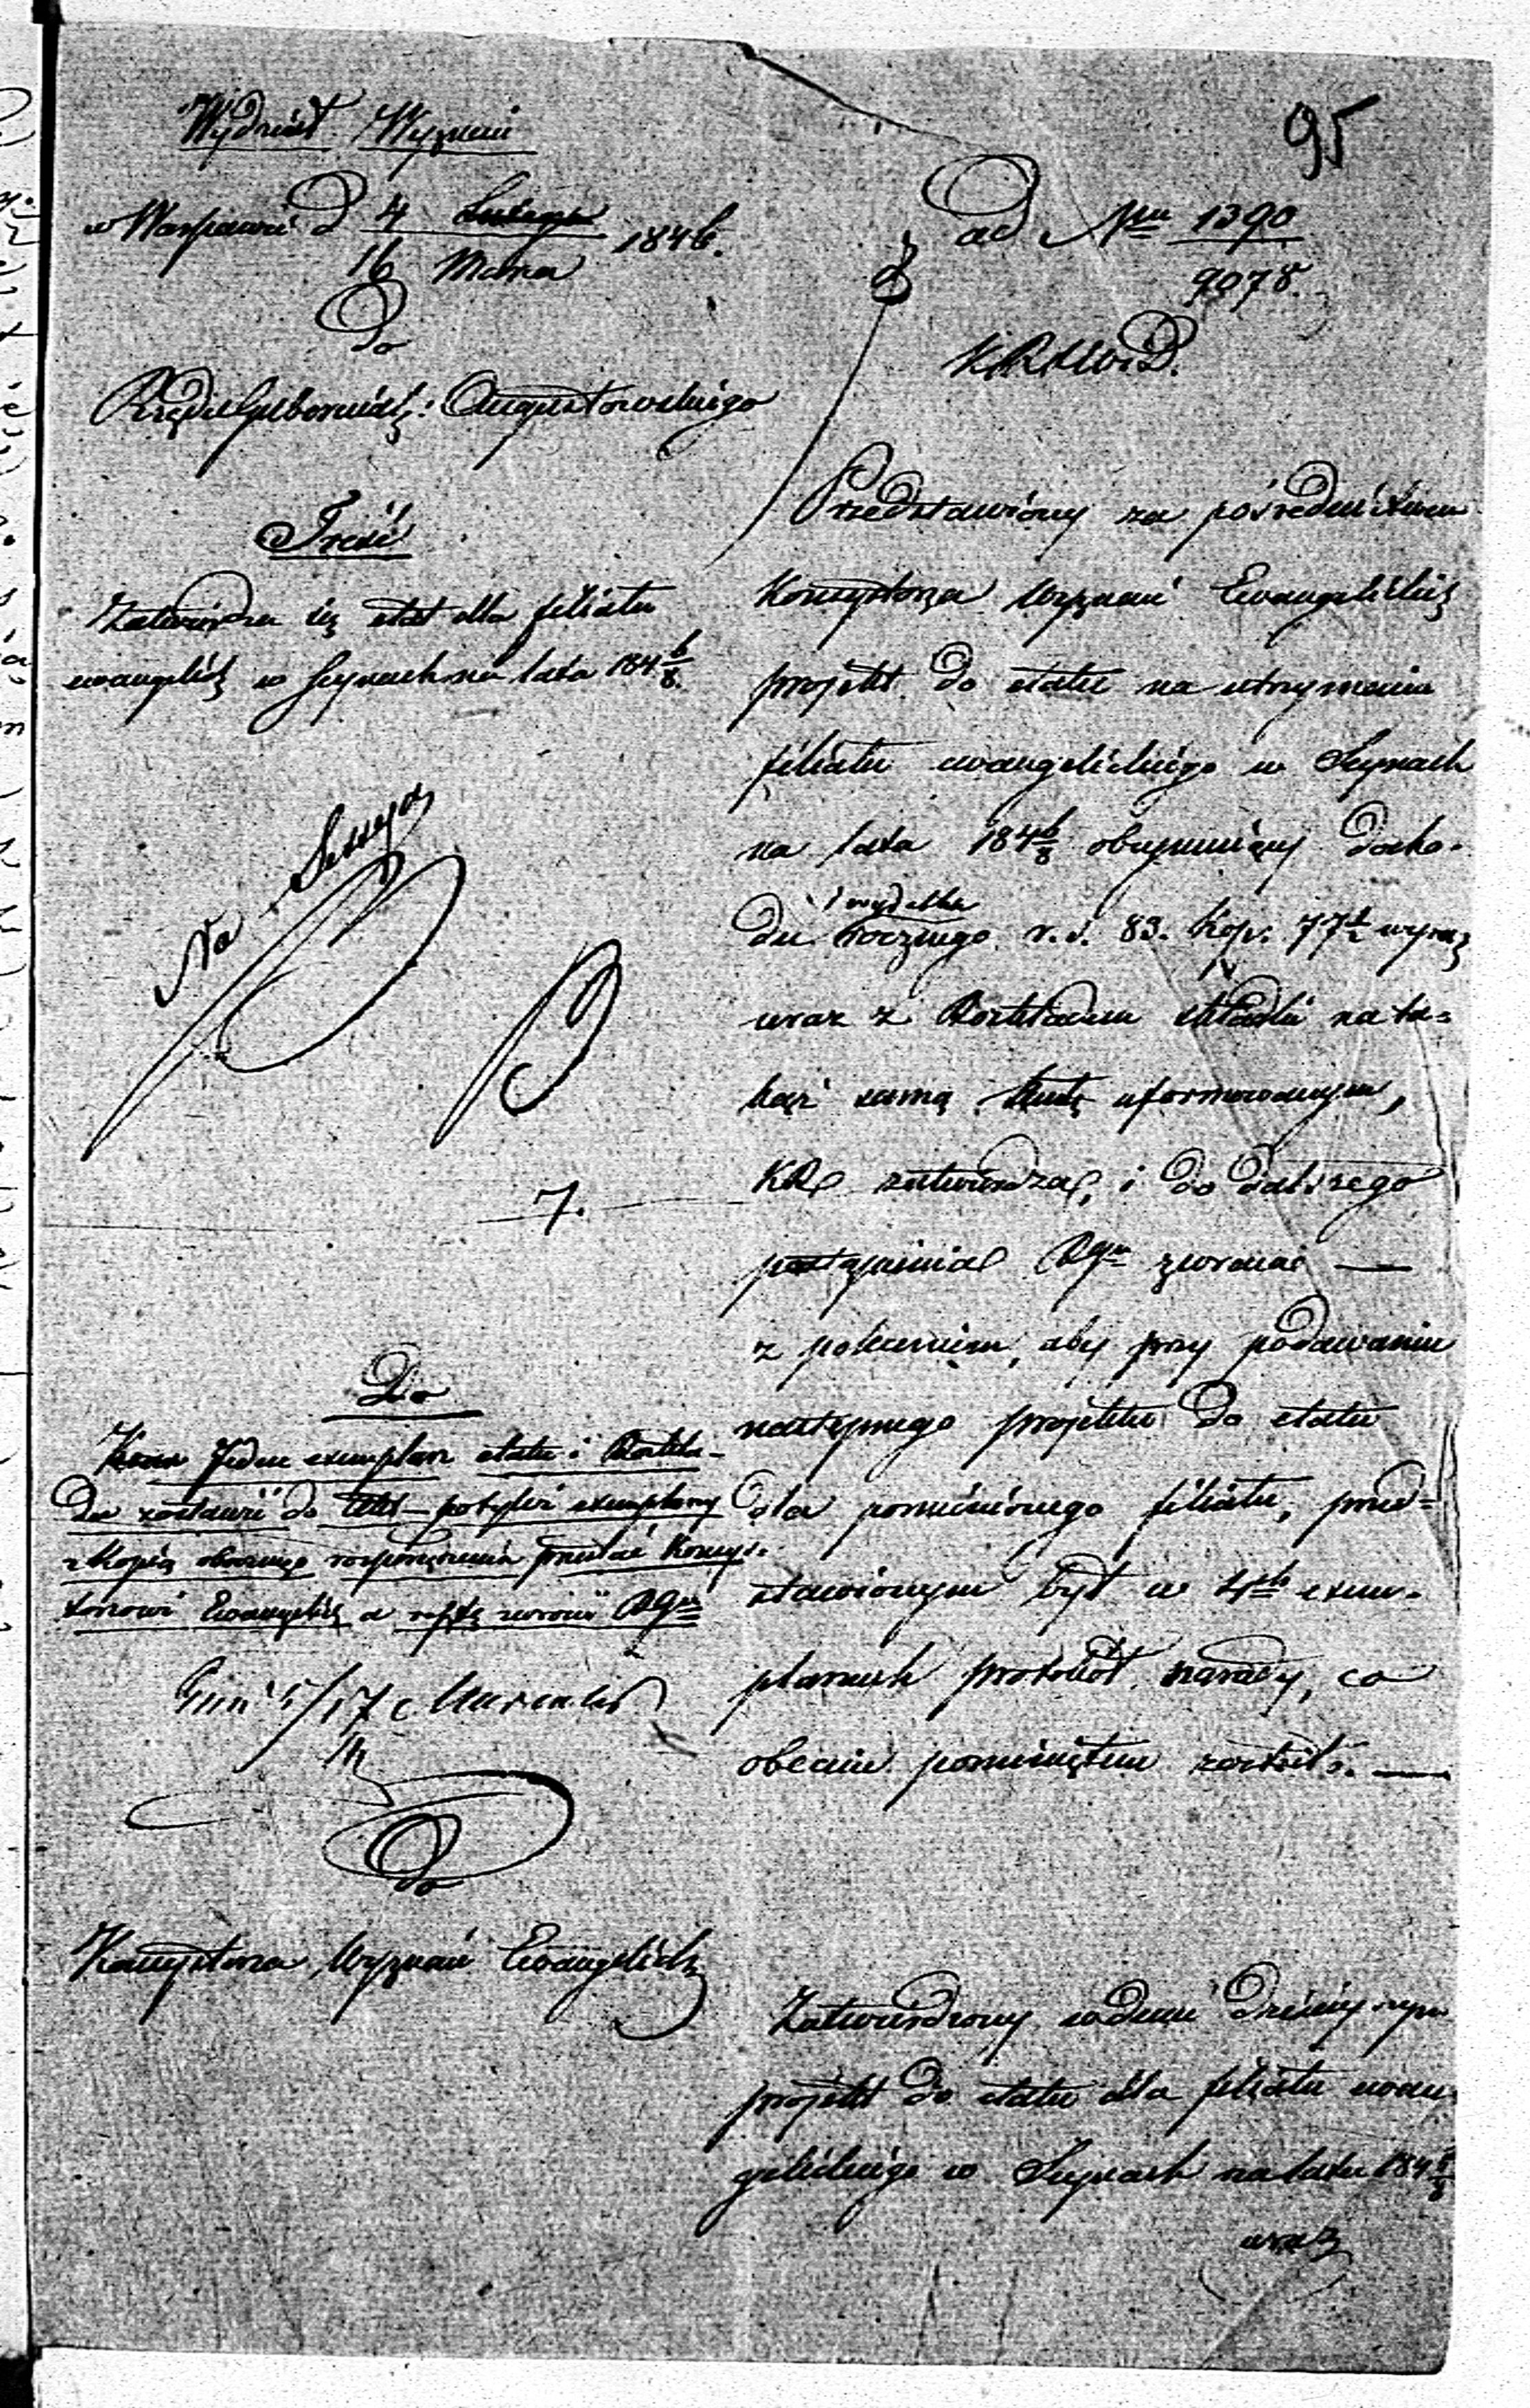 95
Wydział Wyznań
w Warszawie d 4 Lutego 1846.
16 Marca
Do
Rządu Gubernial: Augustowskiego
Treść
Zatwierdza się etat dla filiału
ewangelick w Seynach na lata 184 6/8.
Na Sessyą
7.
Do
Jeden exemplarz etatu i Rozkła-
du zostawić do Akt – potrzebi exemplarz
z kopią obecnego rozporządzenia przesłać Konsys-
torzowi Ewangelick a resztę zwrócić RGu
5/17 Marca
Do
Konsystorza Wyznań Ewangelick
ad Nru 1390
9078.
K.R.S.W.i.D.
Przedstawiony za pośrednictwem
Konsystorza Wyznań Ewangelickich
projekt do etatu na utrzymanie
filiału ewangelickiego w Seynach
na lata 184 6/8 obejmujący docho-
i wydatku
du rocznego r.s. 83. kop. 77 1/2 wynosz
wraz z Rozkładem składki na ta-
kąż samą kwotę uformowanym,
KR zatwierdza, i do dalszego
postąpienia RGu zwraca —
z poleceniem, aby przy podawaniu
następnego projektu do etatu
dla pomienionego filiału, przed-
stawionym był w 4ch exem-
plarzach protokół narady, co
obecnie pominiętem zostało. —
Zatwierdzony w dniu dzisiejszym
projekt do etatu dla filiału ewan-
gelickiego w Seynach na lata 184 6/8
wraz